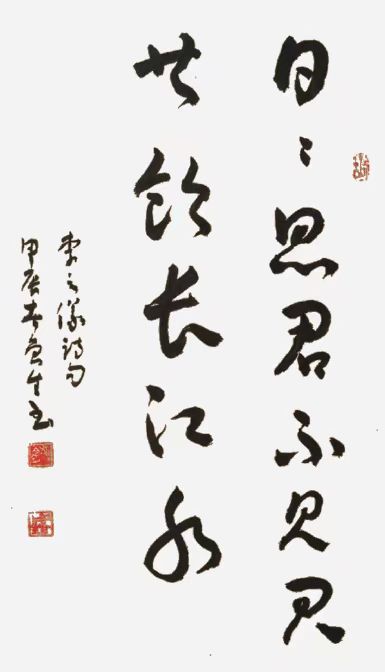 日日思君不见君
共饮长江水
李之仪诗句
甲辰春生书